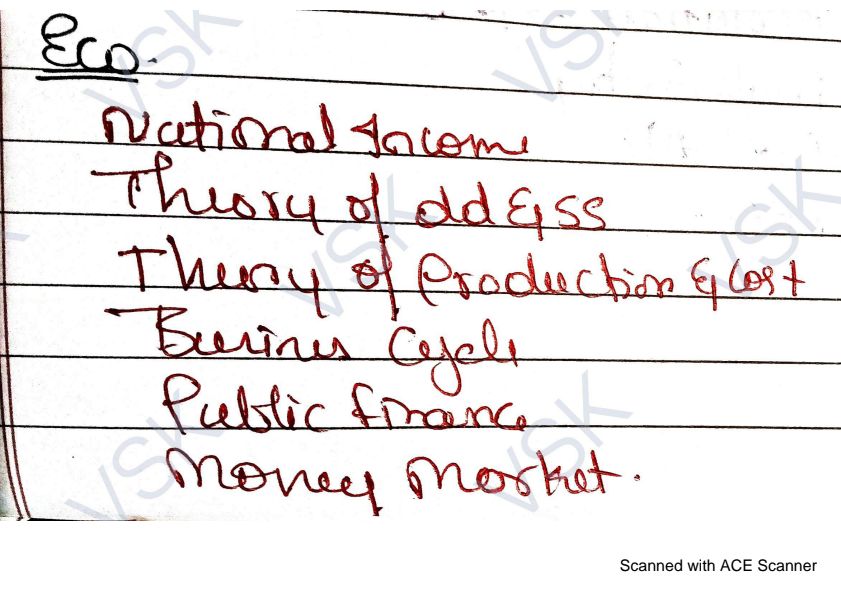 Eco.
National Income
Theory of dd & ss
Theory of Production & Cost
Business Cycle
Public finance
Money Market.
VSK
VSK
VSK
VSK
VSK
VSK
Scanned with ACE Scanner